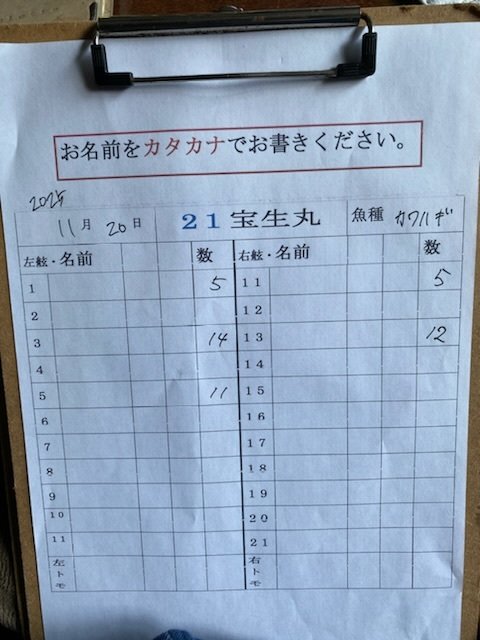 お名前をカタカナでお書きください。
2025
11月 20日 21宝生丸 魚種 カワハギ
左舷・名前 数 右舷・名前 数
1 5 11 5
2 12
3 14 13 12
4 14
5 11 15
6 16
7 17
8 18
9 19
10 20
11 21
左トモ 右トモ